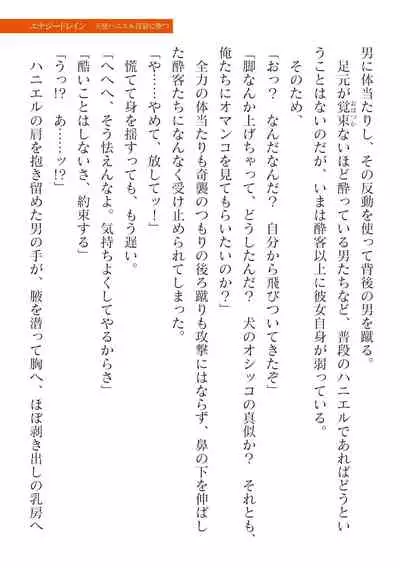 エナジードレイン　天使ハニエル百淫に堕つ
男に体当たりし、その反動を使って背後の男を蹴る。
足元が覚束ないほど酔っている男たちなど、普段のハニエルであればどうとい
うことはないのだが、いまは酔客以上に彼女自身が弱っている。
そのため、
「おっ？　なんだなんだ？　自分から飛びついてきたぞ」
「脚なんか上げちゃって、どうしたんだ？　犬のオシッコの真似か？　それとも、
俺たちにオマンコを見てもらいたいのか？」
全力の体当たりも奇襲のつもりの後ろ蹴りも攻撃にはならず、鼻の下を伸ばし
た酔客たちになんなく受け止められてしまった。
「や……やめて、放してッ！」
慌てて身を揺すっても、もう遅い。
「へへへ、そう怯えんなよ。気持ちよくしてやるからさ」
「酷いことはしないさ、約束する」
「うっ!?　あ……ッ!?」
ハニエルの肩を抱き留めた男の手が、腋を潜って胸へ、ほぼ剥き出しの乳房へ